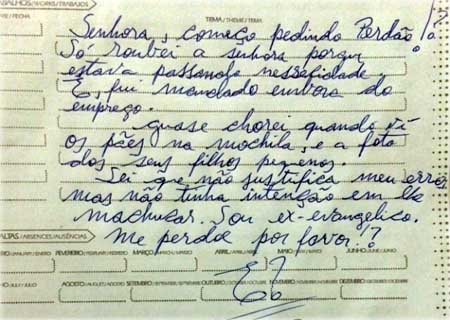 TRABALHOS/WORKS/TRABAJOS
DATE/FECHA
TEMA/THEME/TEMA
Senhora, começo pedindo Perdão!
Só roubei a senhora porque
estava passando nessecidade.
E, fui mandado embora do
emprego.
quase chorei quando vi
os pães na mochila, e a foto
dos seus filhos pequenos.
Sei que não justifica meu erro,
mas não tinha intenção em lhe
machucar. Sou ex-evangelico.
Me perdoa por favor!?
FALTAS/ABSENCES/AUSÊNCIAS
JANEIRO/JANUARY/ENERO FEVEREIRO/FEBRUARY/FEBRERO MARÇO/MARCH/MARZO ABRIL/APRIL/ABRIL MAIO/MAY/MAYO JUNHO/JUNE/JUNIO
JULHO/JULY/JULIO AGOSTO/AUGUST/AGOSTO SETEMBRO/SEPTEMBER/SEPTIEMBRE OUTUBRO/OCTOBER/OCTUBRE NOVEMBRO/NOVEMBER/NOVIEMBRE DEZEMBRO/DECEMBER/DICIEMBRE